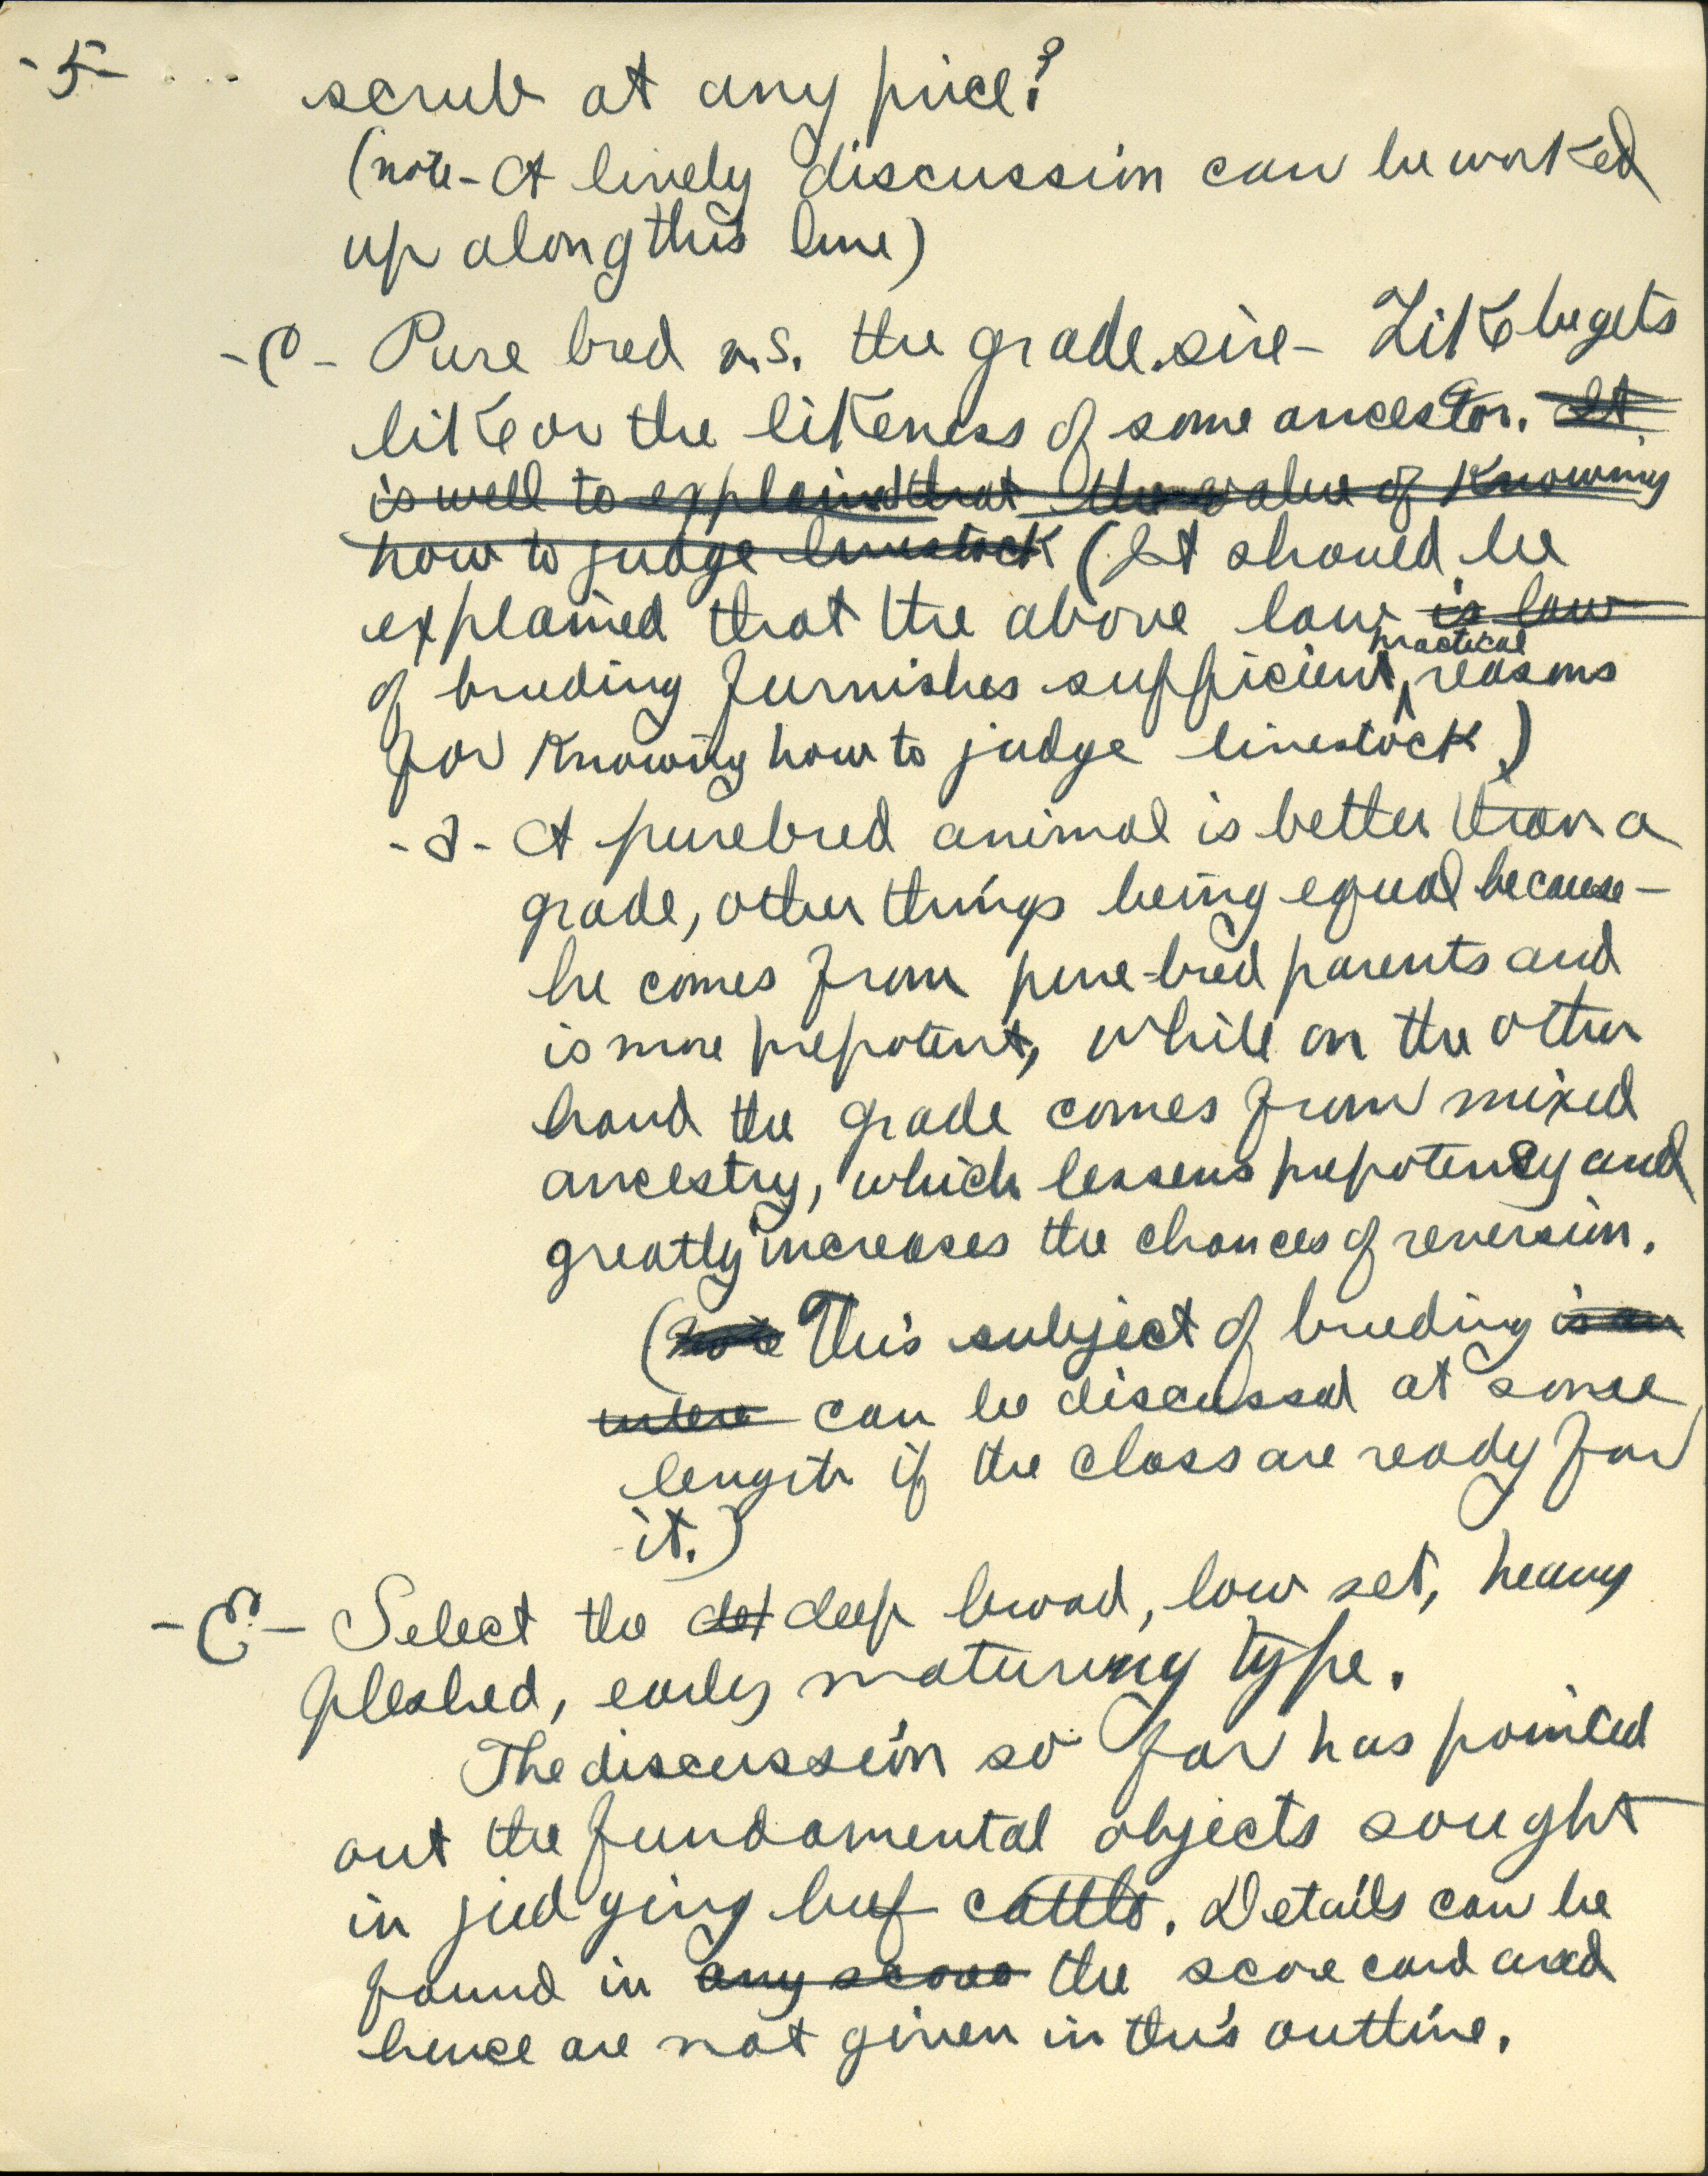 -5- ... scrub at any price?
(note - A lively discussion can be worked
up along this line)
-C- Pure bred v.s. the grade sire - Like begets
like or the likeness of some ancestor. It
is well to explained that the value of knowing
how to judge livestock (It should be
explained that the above law is law
practical
of breeding furnishes sufficient ^ reasons
for knowing how to judge livestock.)
-a- A purebred animal is better than a
grade, other things being equal because -
he comes from pure-bred parents and
is more prepotent, while on the other
hand the grade comes from mixed
ancestry, which lessens prepotency and
greatly increases the chances of reversion.
(Note This subject of breeding is an
intere can be discussed at some
length if the class are ready for
it.)
-E- Select the det deep broad, low set, heavy
fleshed, early maturing type.
The discussion so far has pointed
out the fundamental objects sought
in judging beef cattle. Details can be
found in any score the score card and
hence are not given in this outline.